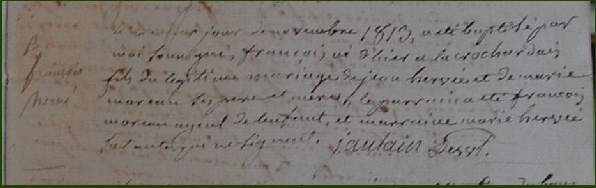 jour de novembre 1813, a été baptisé par
B
moi soussigné, françois né d'hier a la crochardais
françois
fils du légitime mariage de jean hervée et de marie
hervé
moreau ses pere et mere, le parrain a été françois
moreau ayeul de l'enfant, et marraine marie hervée
qui ne signent.